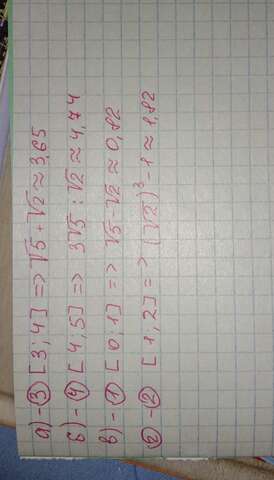 а) - ③ [3; 4] => √5 + √2 ≈ 3,65
б) - ④ [4; 5] => 3√5 : √2 ≈ 4,74
в) - ① [0; 1] => √5 - √2 ≈ 0,82
г) - ② [1; 2] => (√2)³ - 1 ≈ 1,82